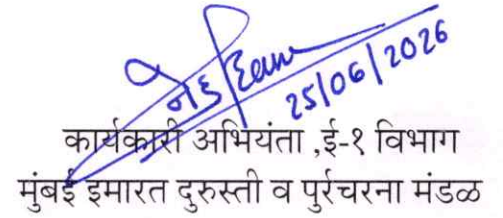 25/06/2026
कार्यकारी अभियंता ,ई-१ विभाग
मुंबई इमारत दुरुस्ती व पुर्रचरना मंडळ